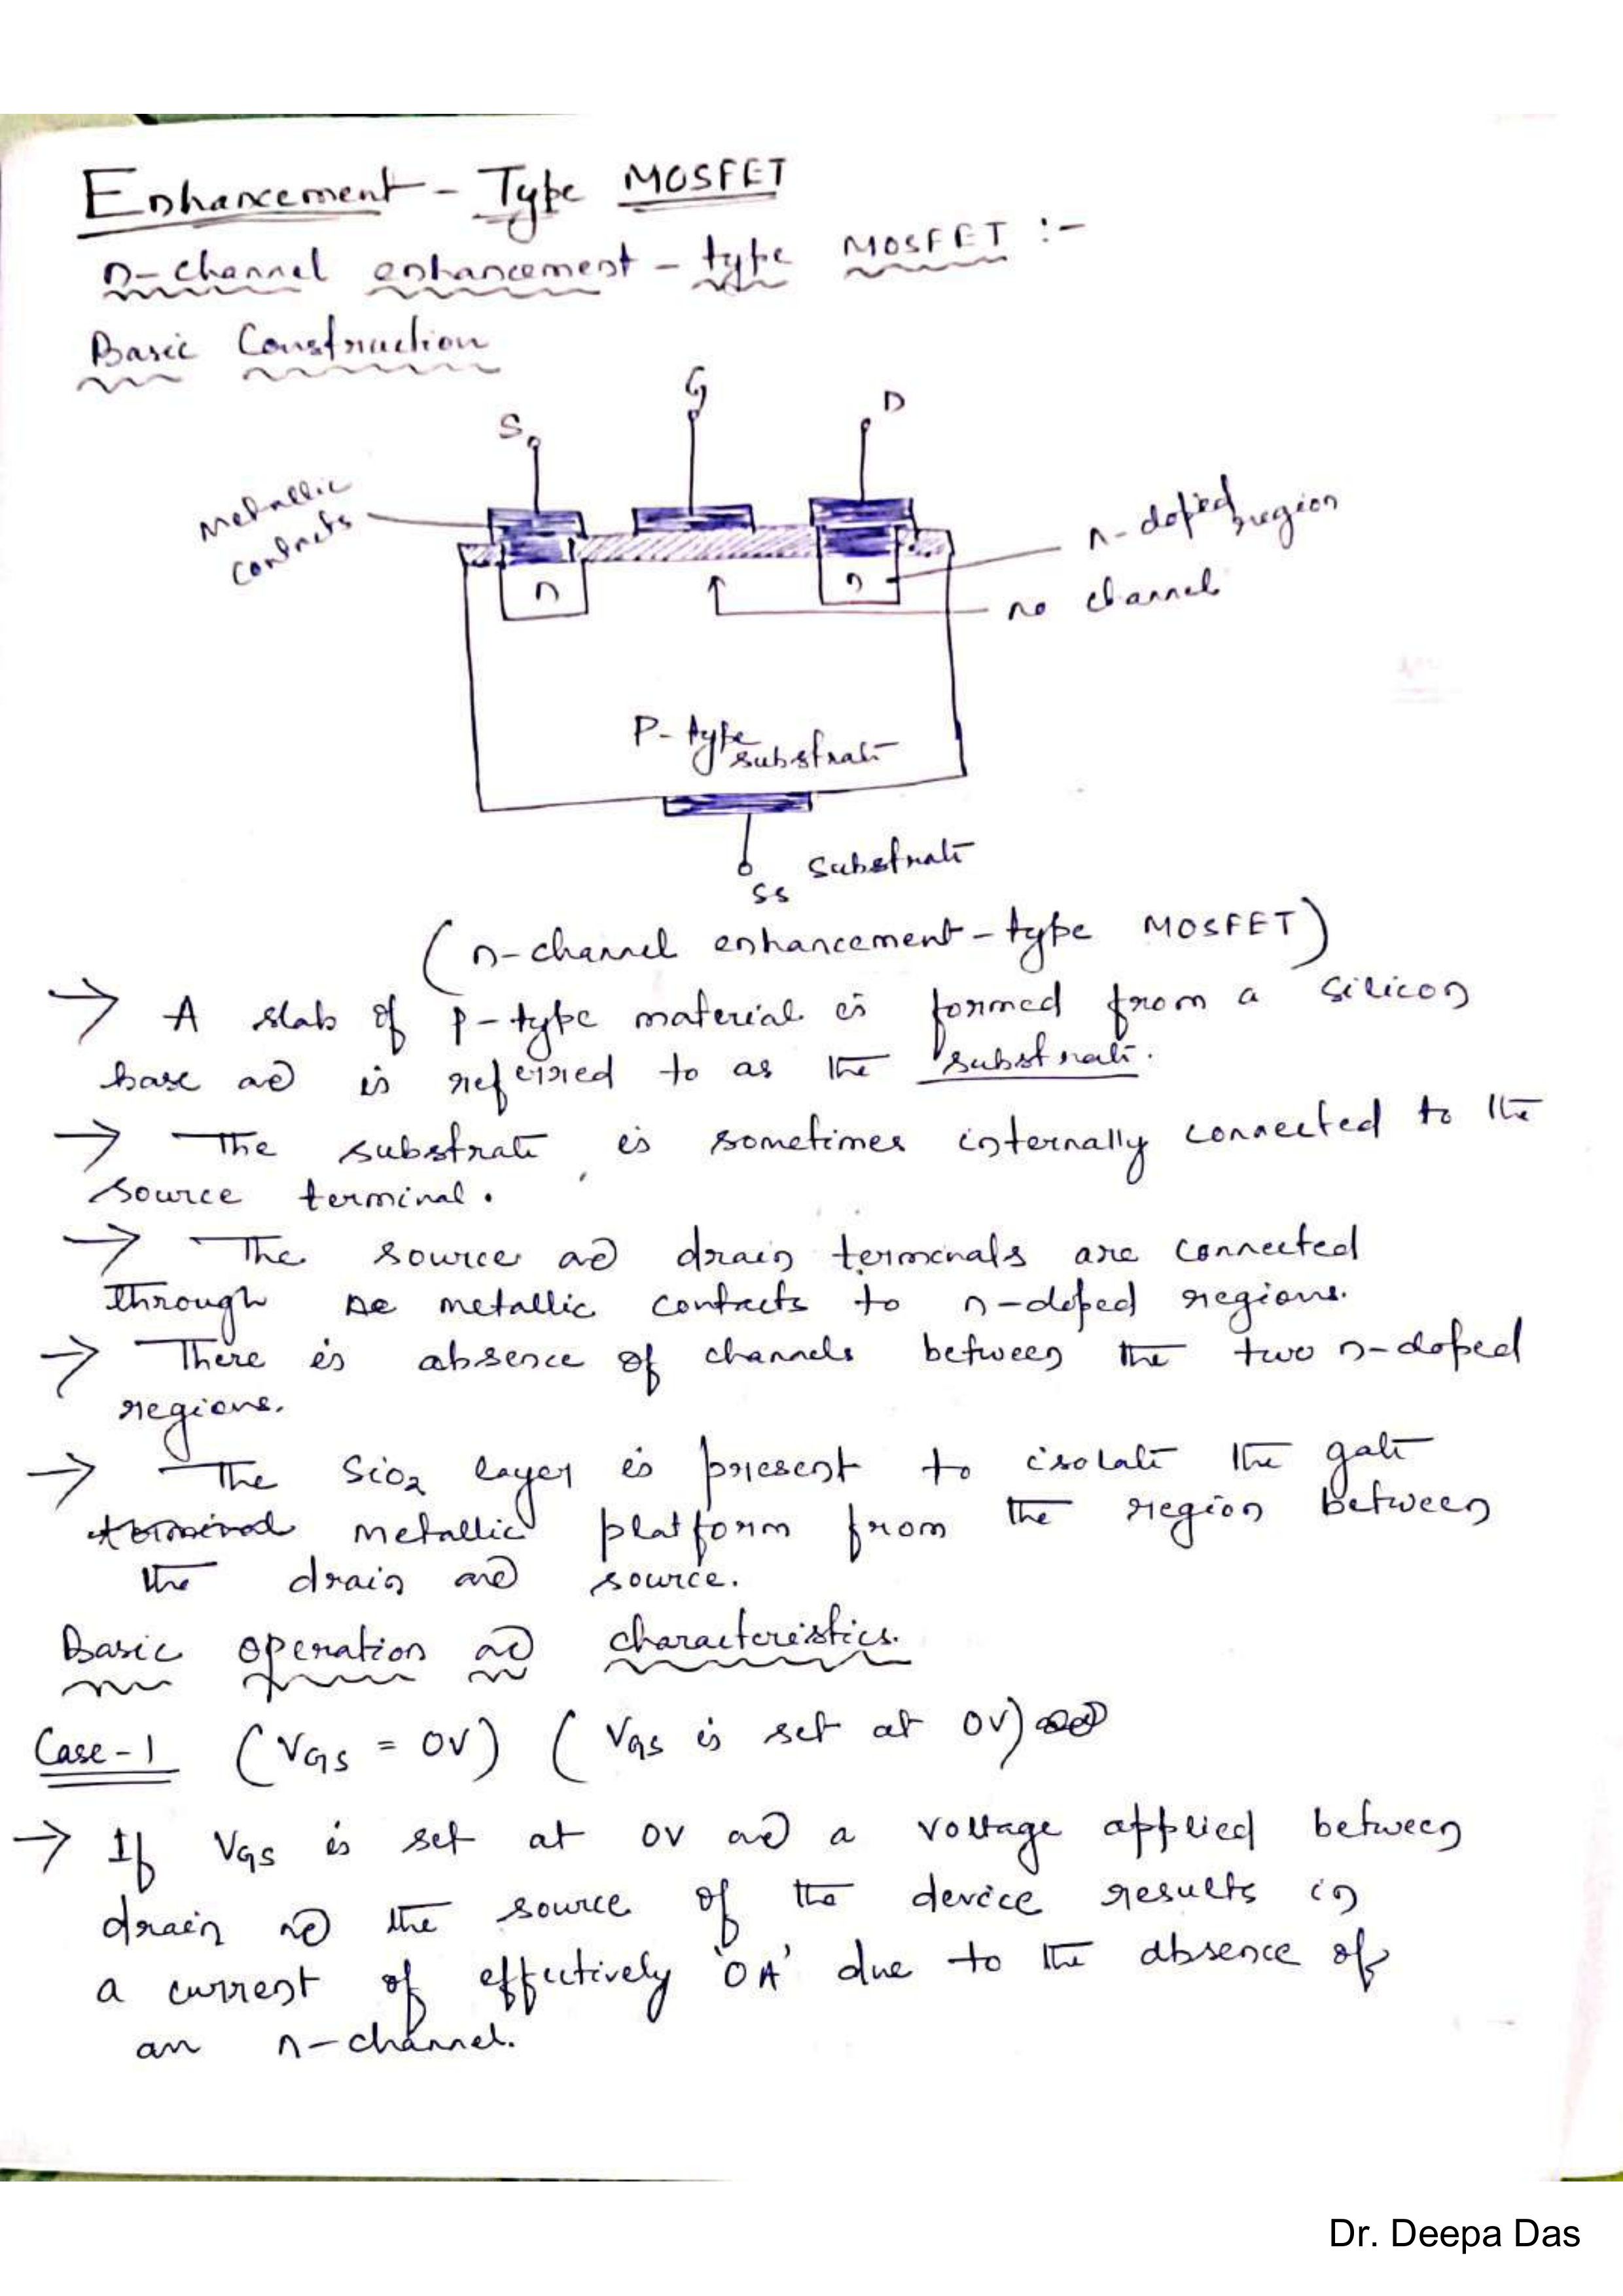 Enhancement - Type MOSFET
n-channel enhancement - type MOSFET :-
Basic Construction
S G D
Metallic contacts
n-doped region
n n
no channel
P-type substrate
Substrate
SS
(n-channel enhancement-type MOSFET)
→ A slab of p-type material is formed from a silicon
base and is referred to as the substrate.
→ The substrate is sometimes internally connected to the
source terminal.
→ The source and drain terminals are connected
through metallic contacts to n-doped regions.
→ There is absence of channels between the two n-doped
regions.
→ The SiO2 layer is present to isolate the gate
terminal metallic platform from the region between
the drain and source.
Basic operation and characteristics.
Case-1 (VGS = 0V) (VGS is set at 0V)
→ If VGS is set at 0V and a voltage applied between
drain and the source of the device results in
a current of effectively '0A' due to the absence of
an n-channel.
Dr. Deepa Das